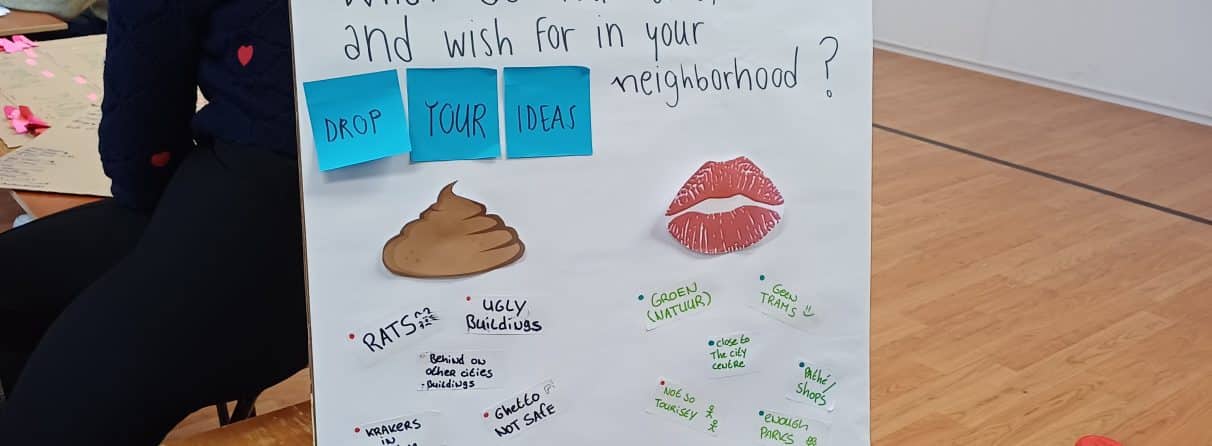 and wish for in your
neighborhood ?
DROP YOUR IDEAS
RATS
UGLY
Buildings
Behind on
other cities
- Buildings
Ghetto
NOT SAFE
KRAKERS
IN
GROEN
(NATUUR)
Geen
TRAMS
close to
The city
centre
Pathé/
Shops
NOT SO
TOURISTY
enough
PARKS